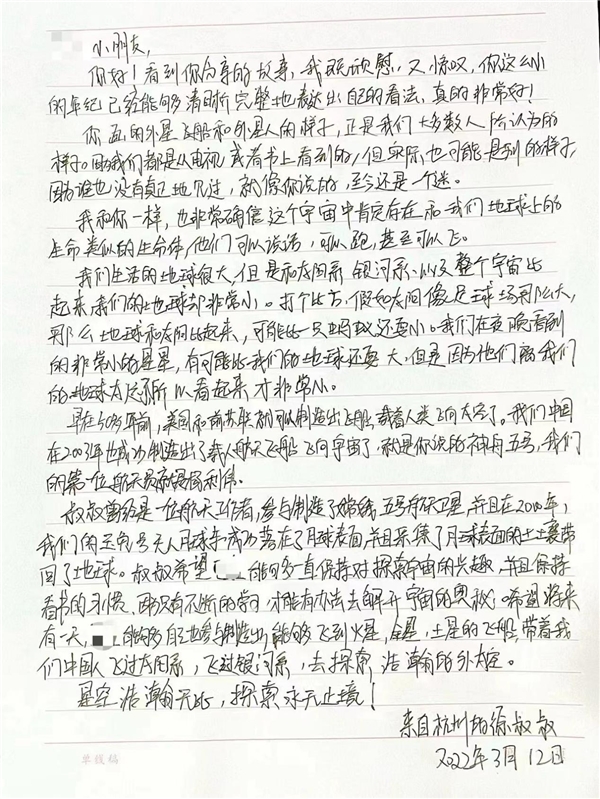 小朋友,
你好！看到你分享的故事，我既欣慰，又惊叹，你这么小
的年纪已经能够清晰完整地表达出自己的看法，真的非常好！
你画的外星飞船和外星人的样子，正是我们大多数人所认为的
样子。因为我们都是从电视或者书上看到的，但实际也可能是别的样子，
因为谁也没有真正地见过，就像你说的，至今还是一个迷。
我和你一样，也非常确信这个宇宙中肯定存在和我们地球上的
生命类似的生命体，他们可以说话，可以跑，甚至可以飞。
我们生活的地球很大，但是和太阳系 银河系、以及整个宇宙比
起来，我们的地球却非常小。打个比方，假如太阳像足球场那么大，
那么地球和太阳比起来，可能比一只蚂蚁还要小。我们在夜晚看到
的非常小的星星，有可能比我们的地球还要大，但是因为他们离我们
的地球太远了所以看起来才非常小。
早在50多年前，美国和前苏联就可以制造出飞船，载着人类飞向太空了。我们中国
在2003年也成功制造出了载人航天飞船飞向宇宙了，就是你说的神舟五号，我们
的第一位航天员就是杨利伟。
叔叔曾经是一位航天工作者，参与制造了嫦娥五号航天卫星，并且在2020年，
我们的五号无人月球车成功落在了月球表面，并且采集了月球表面的土壤带
回了地球。叔叔希望 能够一直保持对探索宇宙的兴趣，并且保持
看书的习惯，因为只有不断的学习，才能有办法去解开宇宙的奥秘。希望将来
有一天， 能够参与制造出能够飞到火星，金星，土星的飞船，带着我
们中国人飞过太阳系，飞过银河系，去探索浩瀚的外太空。
星空浩瀚无比，探索永无止境！
来自杭州的徐叔叔
2022年3月12日
单线稿